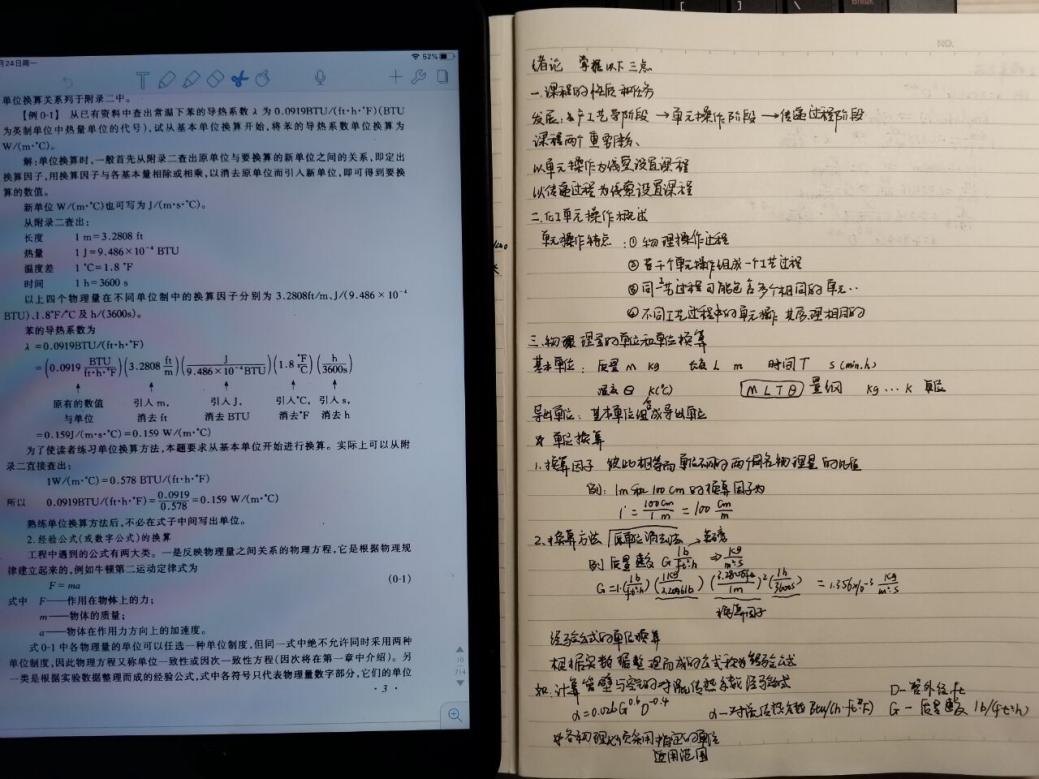 月24日周一
52%
单位换算关系列于附录二中。
【例 0-1】 从已有资料中查出常温下苯的导热系数 λ 为 0.0919BTU/(ft·h·°F)(BTU
为英制单位中热量单位的代号),试从基本单位换算开始,将苯的导热系数单位换算为
W/(m·°C)。
解:单位换算时,一般首先从附录二查出原单位与要换算的新单位之间的关系,即定出
换算因子,用换算因子与各基本量相除或相乘,以消去原单位而引入新单位,即可得到要换
算的数值。
新单位 W/(m·°C)也可写为 J/(m·s·°C)。
从附录二查出:
长度 1 m=3.2808 ft
热量 1 J=9.486×10⁻⁴ BTU
温度差 1 °C=1.8 °F
时间 1 h=3600 s
以上四个物理量在不同单位制中的换算因子分别为 3.2808ft/m、J/(9.486×10⁻⁴
BTU)、1.8°F/°C 及 h/(3600s)。
苯的导热系数为
λ=0.0919BTU/(ft·h·°F)
=(0.0919 BTU/(ft·h·°F))(3.2808 ft/m)(J/(9.486×10⁻⁴BTU))(1.8 °F/°C)(h/3600s)
原有的数值 引入 m, 引入 J, 引入°C, 引入 s,
与单位 消去 ft 消去 BTU 消去°F 消去 h
=0.159J/(m·s·°C)=0.159 W/(m·°C)
为了使读者练习单位换算方法,本题要求从基本单位开始进行换算。实际上可以从附
录二直接查出:
1W/(m·°C)=0.578 BTU/(ft·h·°F)
所以 0.0919BTU/(ft·h·°F)=0.0919/0.578=0.159 W/(m·°C)
熟练单位换算方法后,不必在式子中间写出单位。
2.经验公式(或数字公式)的换算
工程中遇到的公式有两大类。一是反映物理量之间关系的物理方程,它是根据物理规
律建立起来的,例如牛顿第二运动定律式为
F=ma (0-1)
式中 F——作用在物体上的力;
m——物体的质量;
a——物体在作用力方向上的加速度。
式 0-1 中各物理量的单位可以任选一种单位制度,但同一式中绝不允许同时采用两种
单位制度,因此物理方程又称单位一致性或因次一致性方程(因次将在第一章中介绍)。另
一类是根据实验数据整理而成的经验公式,式中各符号只代表物理量数字部分,它们的单位
· 3 ·
绪论 掌握以下三点
一.课程的性质和任务
发展: 生产工艺学阶段 →单元操作阶段 →传递过程阶段
课程两个重要
以单元操作为线索设置课程
以传递过程为线索设置课程
二.化工单元操作概述
单元操作特点 :① 物理操作过程
② 若干个单元操作组成一个工艺过程
③ 同一工艺过程可能包含多个相同的单元..
④ 不同工艺过程中的单元操作 其原理相同的
三.物理量的单位和单位换算
基本单位: 质量 M kg 长度 L m 时间 T s (min.h)
温度 θ K(°C) MLTθ 量纲 kg … k 单位
导出单位: 基本单位组成导出单位
* 单位换算
1.换算因子 彼此相等而单位不同的两个同名物理量的比值
例: 1m和100cm的换算因子为
100cm/1m = 100 cm/m
2.换算方法 原单位消去法
例 质量 G lb/ft²·h ⇒ kg/m²·s
G=1·(lb/ft²h)(1kg/2.2046lb)(3.2808ft/1m)²(1h/3600s) = 1.356×10⁻³ kg/m²·s
换算因子
经验公式的单位换算
根据实验数据整理而成的公式称为经验公式
如.计算管壁与空气的对流传热系数经验公式 D-管外径 ft
α=0.026G⁰·⁶D⁻⁰·⁴ α-对流传热系数 Btu/(h·ft²·°F) G - 质量 lb/(ft²·h)
*各物理必须采用指定的单位
适用范围